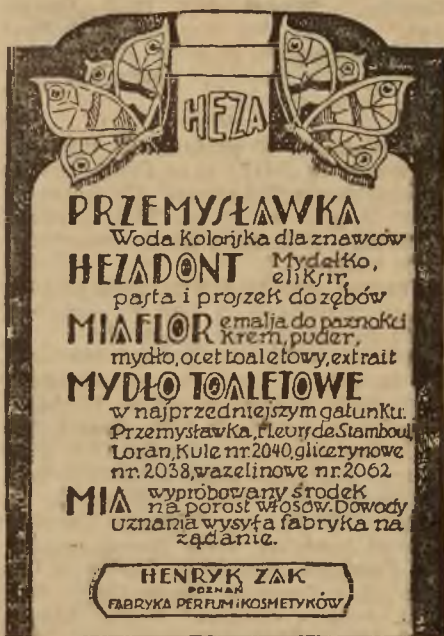 HEZA
PRZEMYSŁAWKA
Woda Kolońska dla znawców
HEZADONT Mydełko,
eliksir,
pasta i proszek do zębów
MIAFLOR emalja do paznokci
krem, puder,
mydło, ocet toaletowy, extrait
MYDŁO TOALETOWE
w najprzedniejszym gatunku:
Przemysławka, Fleurs de Stamboul
Loran, Kule nr. 2040, glicerynowe
nr. 2038, wazelinowe nr. 2062
MIA wypróbowany środek
na porost włosów. Dowody
uznania wysyła fabryka na
żądanie.
HENRYK ŻAK
POZNAŃ
FABRYKA PERFUM i KOSMETYKÓW